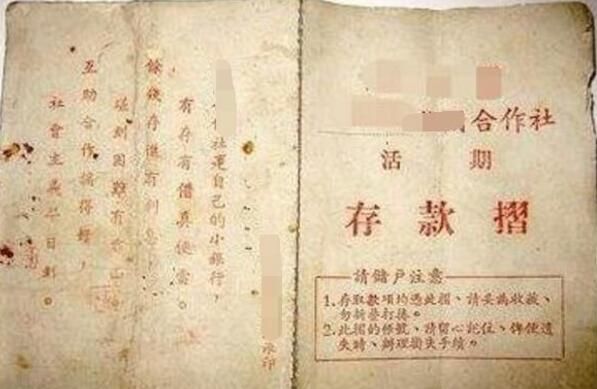 合作社
活期
存款摺
請儲戶注意
1.存取款項均憑此摺、請妥為收藏、
勿折叠打捲。
2.此摺的帳號、請留心記住、俾便遺
失時、辦理掛失手續。
社 自己的小銀行，
有存有借真便當。
餘錢存進有利息，
碰到困難有靠山。
互助合作搞得好，
社會主義早日到。
承印